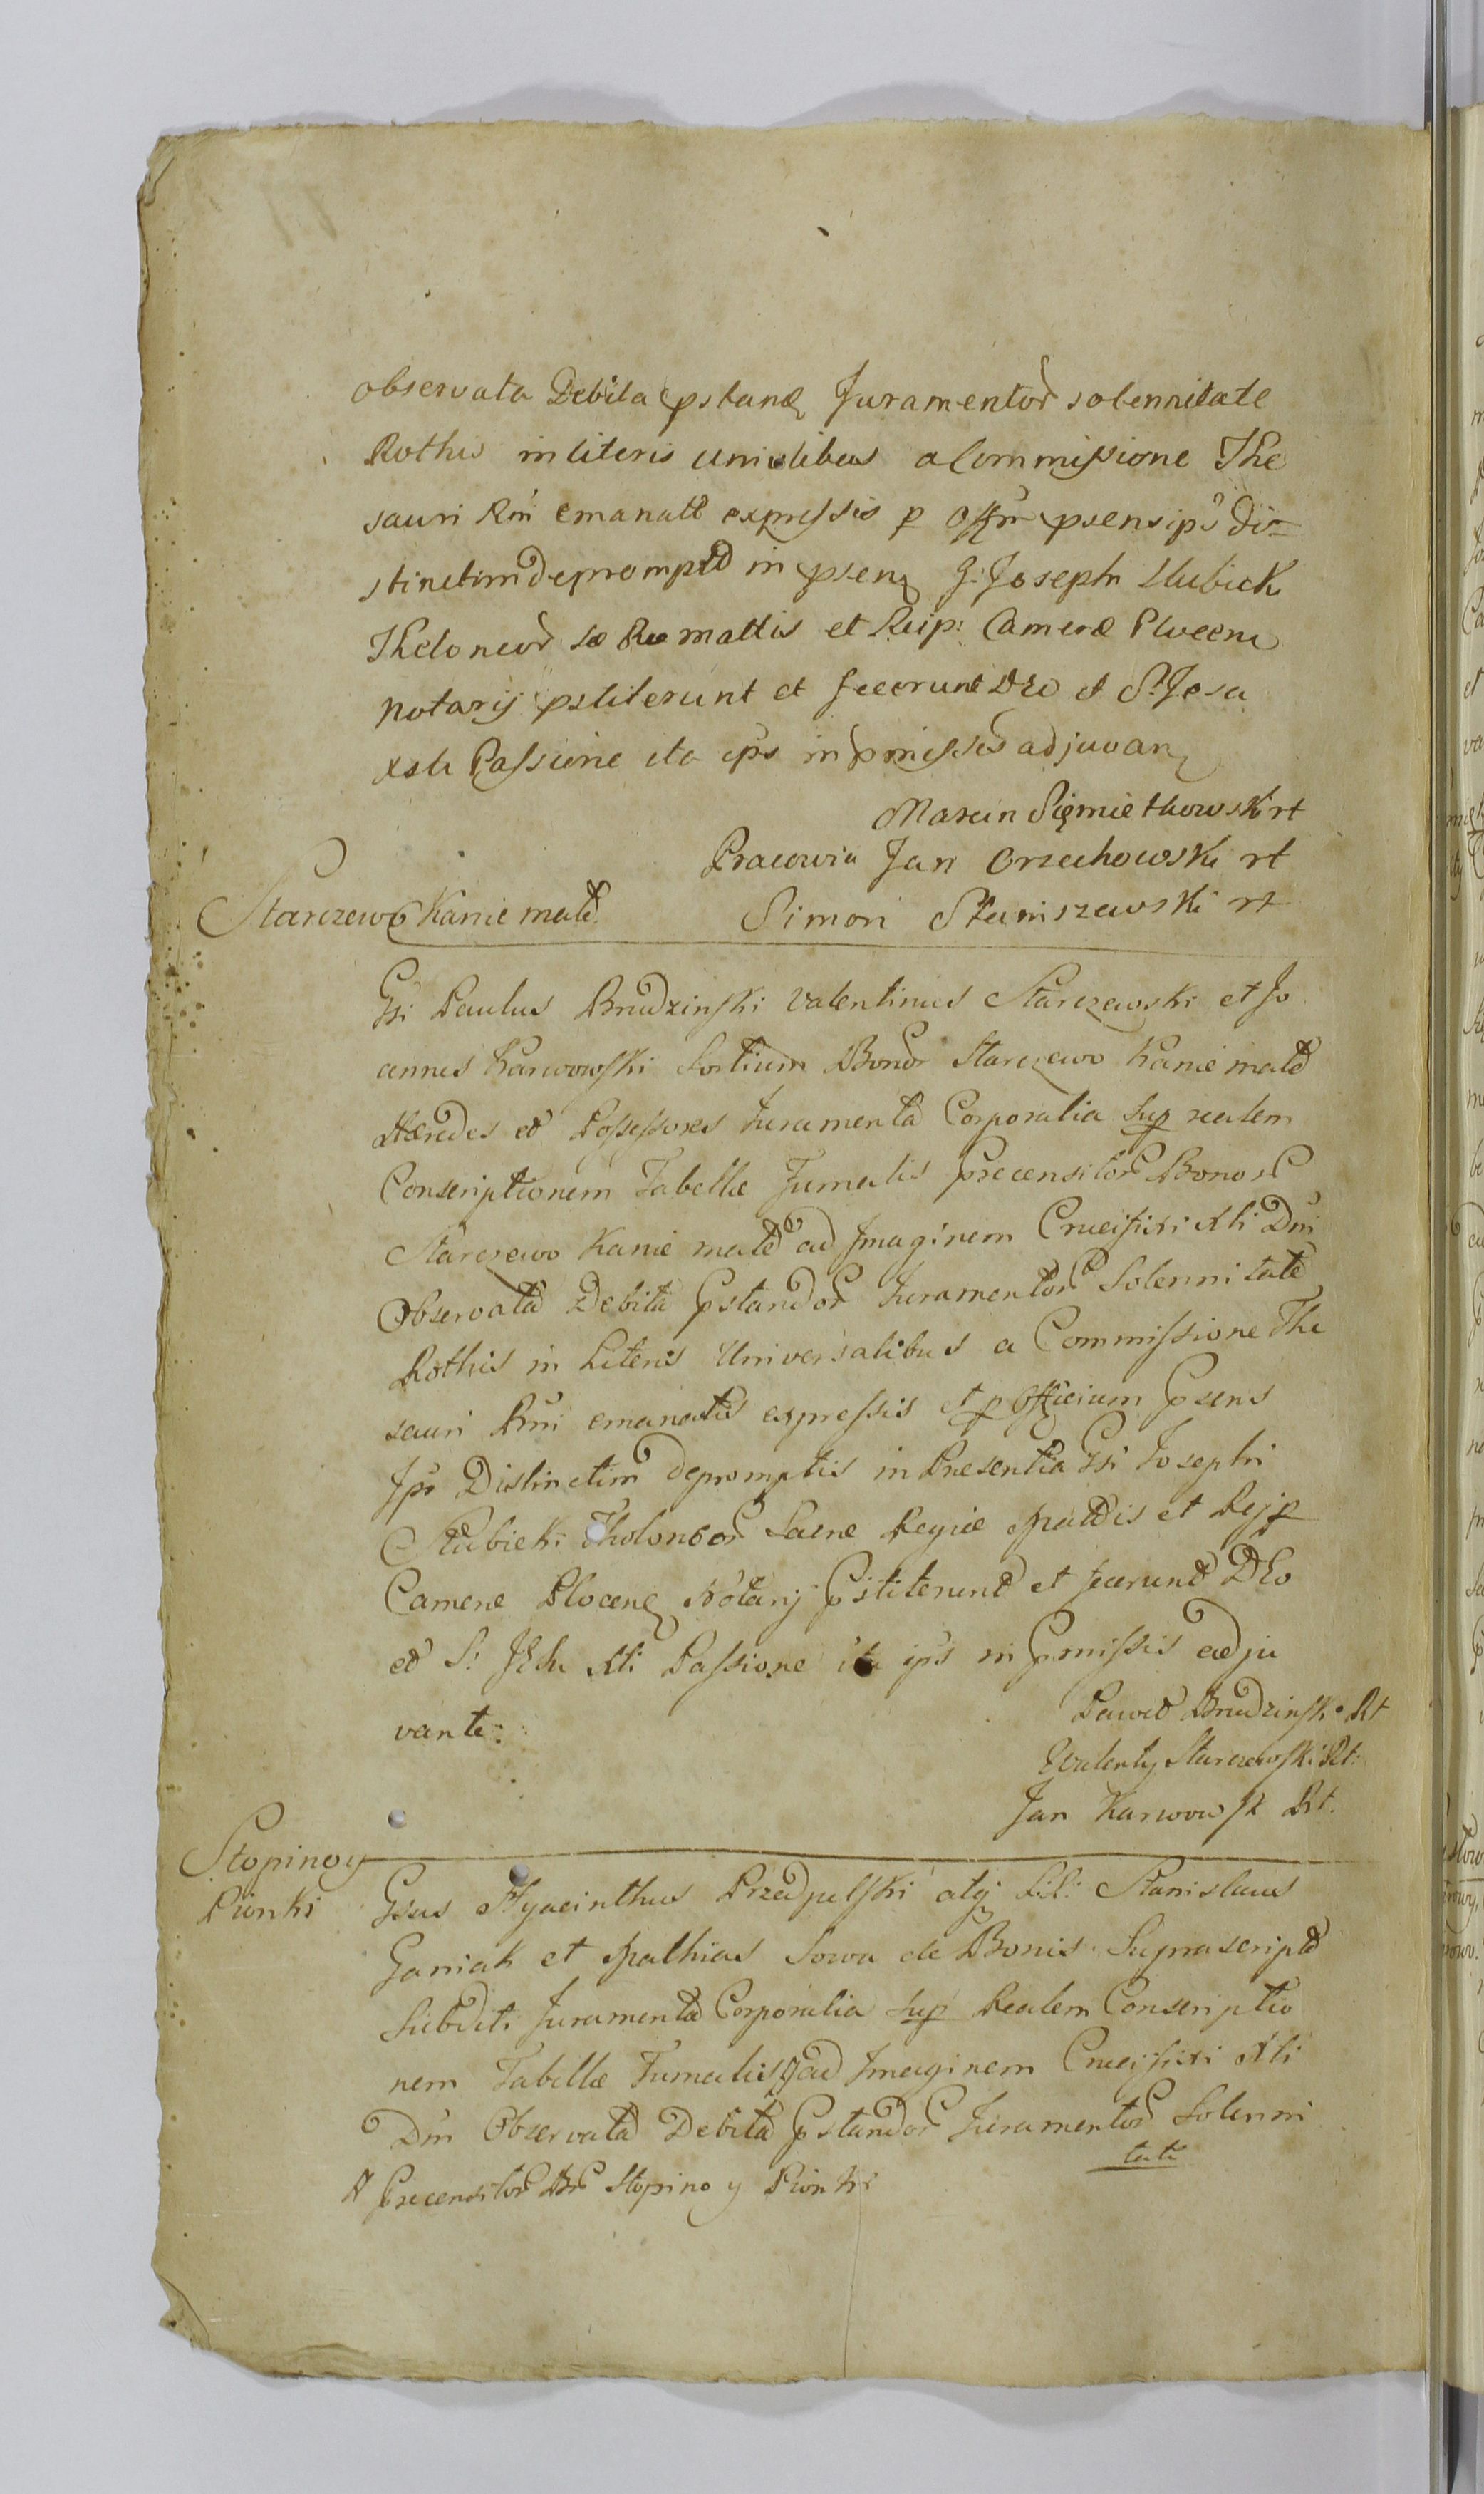 observata Debita pstand Juramentor solennitate
Rothis in literis univlibus a Commissione The
sauri Rni emanatt expressis p Offm psens ips di=
stinctim deprompt in psen G: Joseph Slubicki
Theloneor Sæ Ræ Mattis et Reip: Cameræ Plocen
Notarij pstiterunt et fecerunt DEO et S. Jesu
Xsti Passione ita ips in pmissis adjuvan
Marcin Sięmiethowski rt
Jan Orzechowski rt
Starczewo Kanie matt
Simon Staniszewski rt
Gsi Paulus Brudzinski Valentinus Starczewski et Jo
annes Karwowski Sortium Bonor Starczewo Kanie matt
Hæredes et Possessores Juramenta Corporalia Sup realem
Conscriptionem Tabellæ Fumalis precensitor Bonor
Starczewo Kanie matt ad Imaginem Crucifixi Xti Dni
Observata Debita pstandor Juramentor Solennitate
Rothis in Literis Universalibus a Commissione The
sauri Rni emanatis expressis et p Officium psens
Ips Distinctim depromptis in Presentia Gsi Josephi
Słubicki Tholoneor Sacræ Regiæ Mattis et Rejp
Cameræ Plocen Notarij pstiterunt et fecerunt DEo
et S: JESu Xti Passione ita ips in pmissis adju
vante:
Paweł Brudzinski Rt
Walenty Starczewski Rt:
Jan Karwowsk Rt.
Stopino y
Pionki
Gsus Hyacinthus Przedpelski atq Lab: Stanislaus
Ganiak et Mathias Sowa de Bonis Suprascript
Subditi Juramenta Corporalia Sup Realem Conscriptio
nem Tabellæ Fumalis # ad Imaginem Crucifixi Xti
Dni Observata Debita pstandor Juramentor Solenni
tate
# precensitor Br Stopino y Pionki